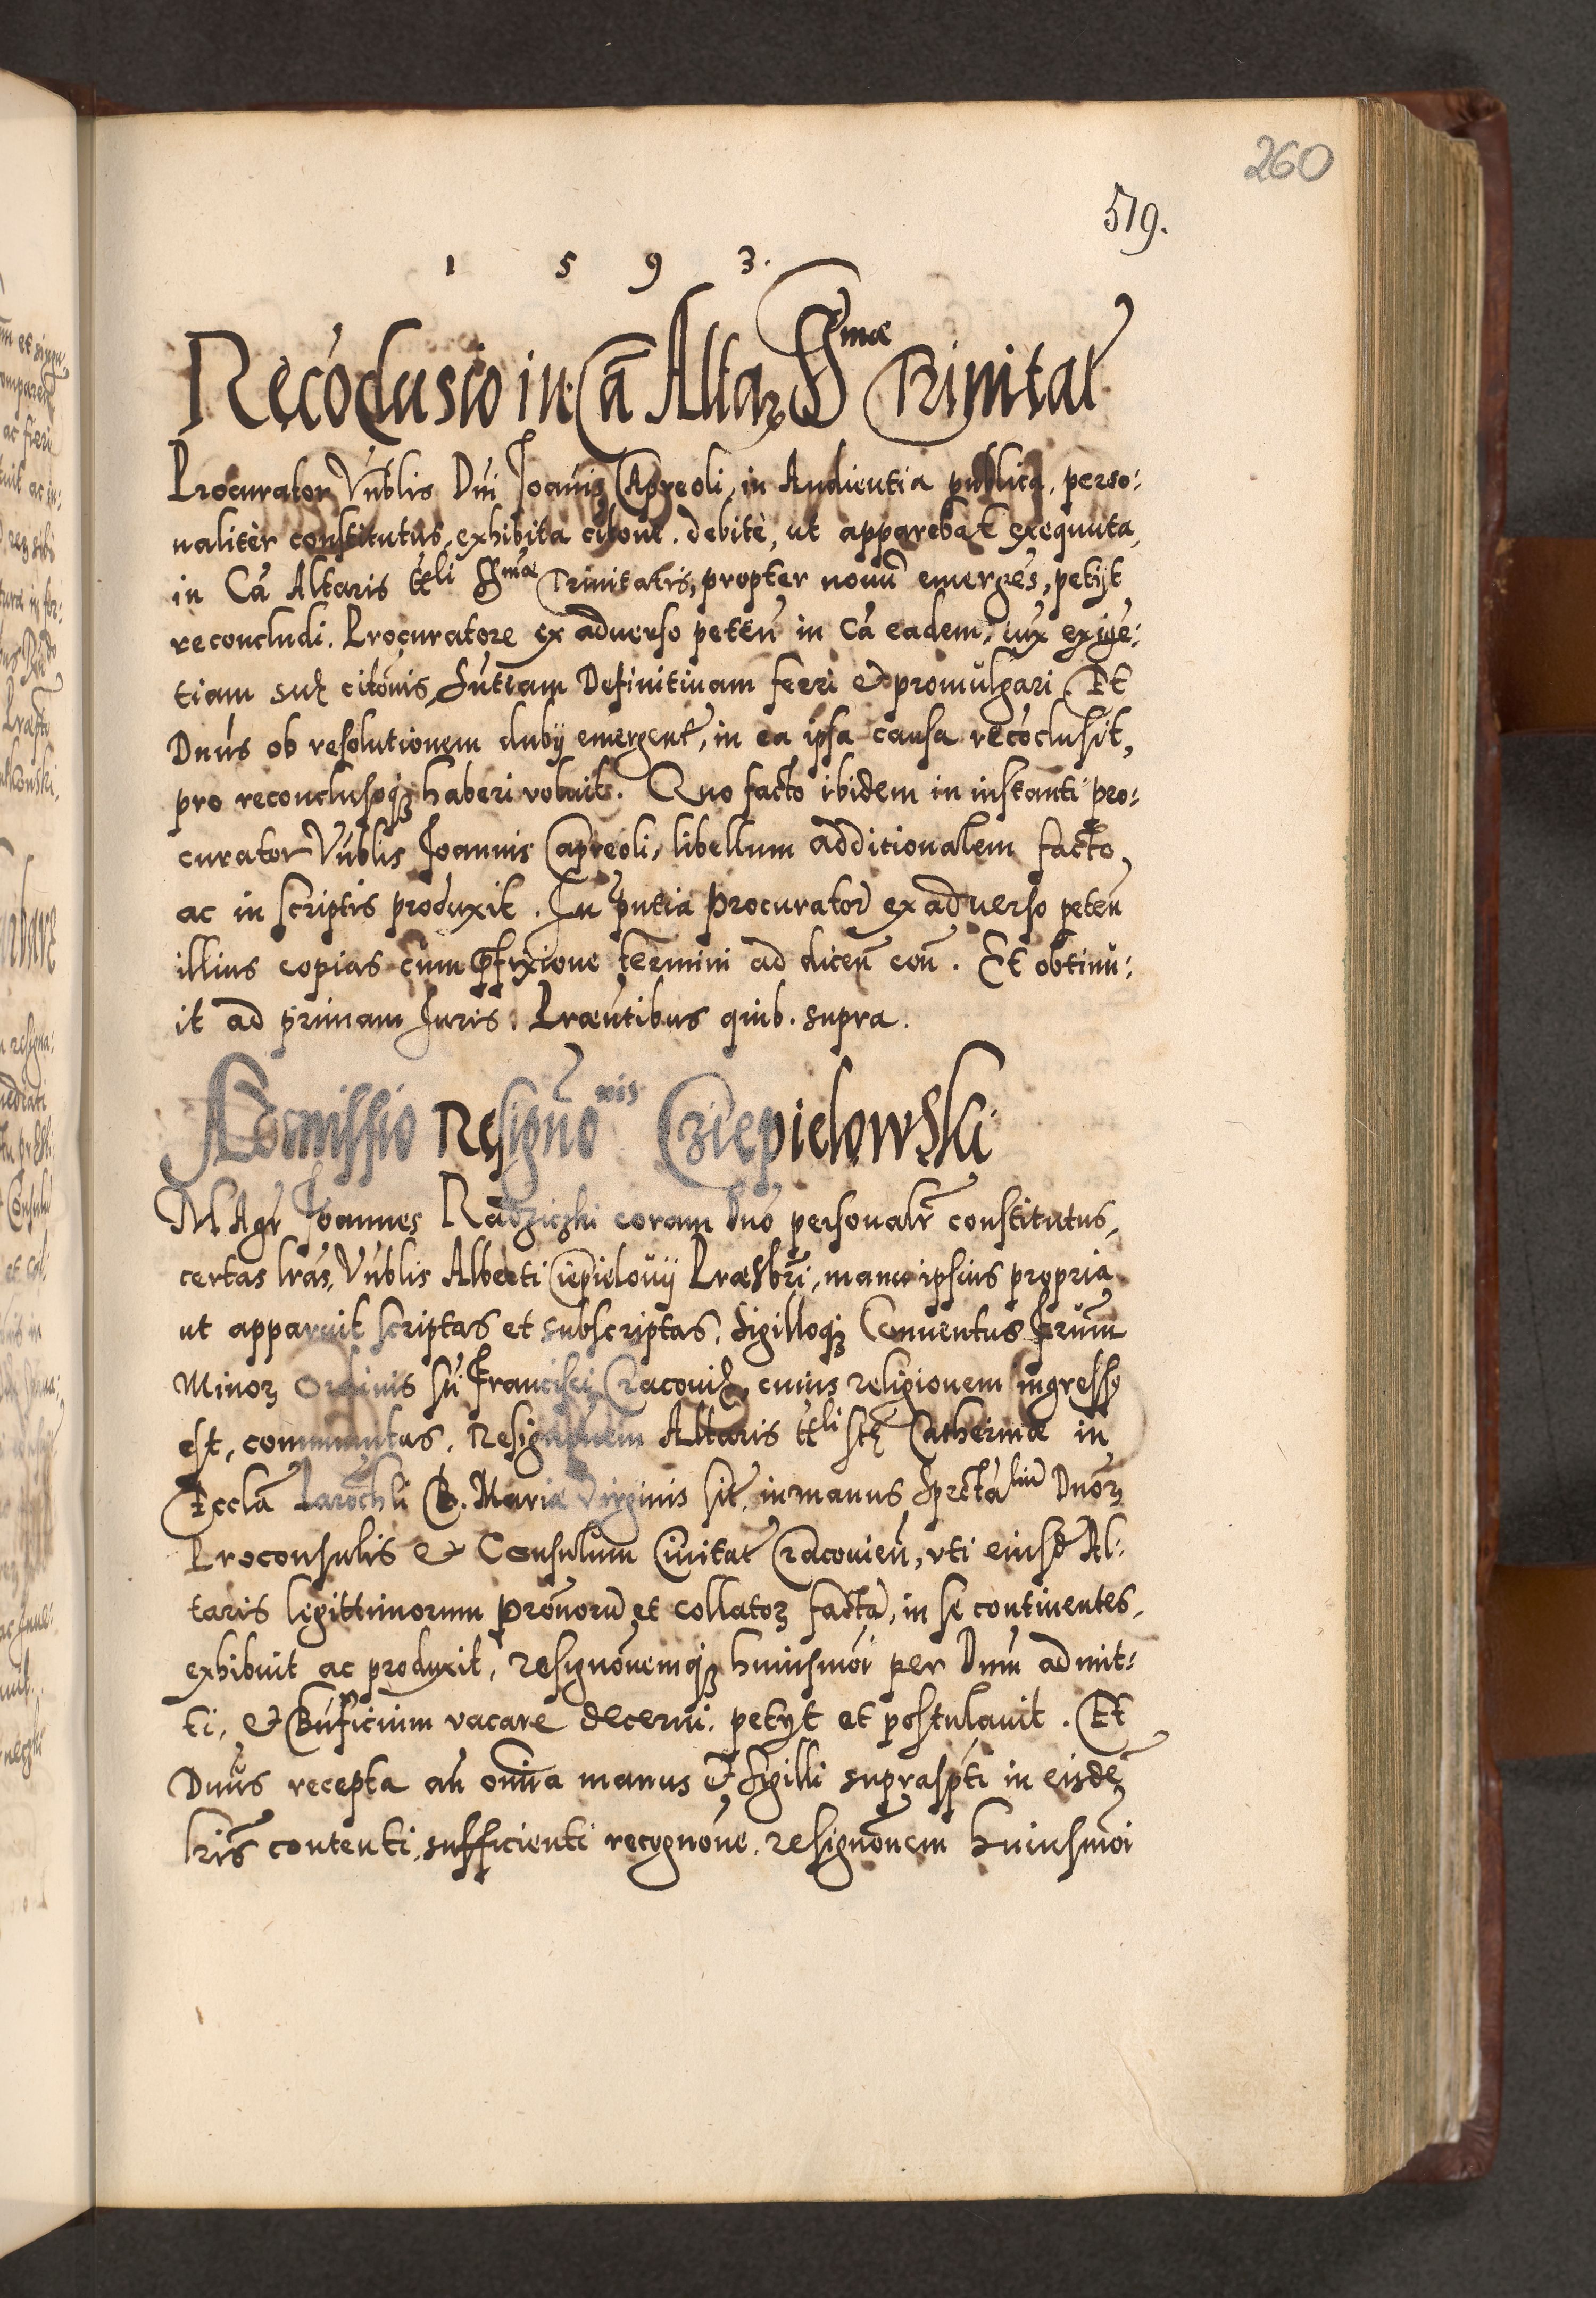 260
519.
1 5 9 3.
Recōclusio in Cā Altaꝝ SSmæ Trinitat
Procurator Vnblis Dni Joānis Capreoli, in Audientia publica, perso:
naliter constitutus, exhibita citōne debite, ut apparebat exequuta,
in Cā Altaris ttli SSmæ Trinitatis, propter novū emergēs, petyt
reconcludi. Procuratore ex adverso petēn in Cā eadem, iux exigē:
tiam suæ citōnis, Sntiam Definitivam ferri et promulgari. Et
Dnus ob resolutionem dubij emergent, in ea ipsa causa recōclusit,
pro reconclusoqꝫ haberi voluit. Quo facto ibidem in instanti pro:
curator Vnblis Joannis Capreoli, libellum additionalem facto,
ac in scriptis produxit. In pntia Procurator ex adverso petēn
illius copias cum pfixione termini ad dicēn con. Et obtinu:
it ad primam Juris. Præntibus quib. supra.
Admissio Resignōnis Cziepielowski
M Agr Joannes Radziczki coram Dno personalr constitutus,
certas lras, Vnblis Alberti Ciepielovij Præsbri, manu ipsius propria
ut apparuit scriptas et subscriptas, Sigilloqꝫ Conventus Frūm
Minoꝝ Ordinis Sti Francisci Cracoviæ, cuius religionem ingressꝰ
est, communitas, Resignōnem Altaris ttli Stæ Catherinæ in
Eccla Parochli B. Mariæ Virginis sit, in manus Spectaliū Dnoꝝ
Proconsulis et Consulum Civitat Cracovien, uti eiusd Al:
taris legittimorum Pronorū et collatoꝝ factā, in se continentes,
exhibuit ac produxit, Resignōnemqꝫ huiusmōi per Dnm admit:
ti, et Bnficium vacare decerni, petyt et postulavit. Et
Dnus recepta an omnia manus et Sigilli suprasp̄ti in eisdē
lris contenti, sufficienti recognōne, resignōnem huiusmōi